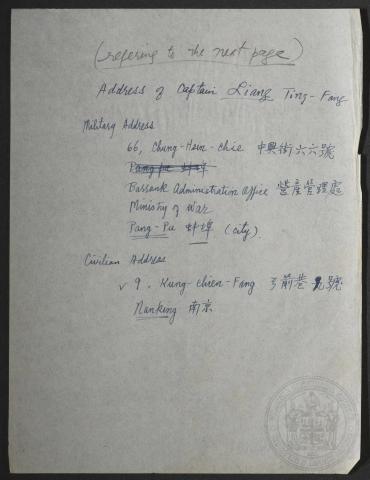 (refering to the next page)
Address of Captain Liang Ting-Fang
Military Address
66, Chung-Hsin-Chie 中興街六六號
Pang-pu 蚌埠
Barrack Administration Office 營產管理處
Ministry of War
Pang-Pu 蚌埠 (city).
Civilian Address
√ 9, Kung-chien-Fang 弓前巷 九號
Nanking 南京